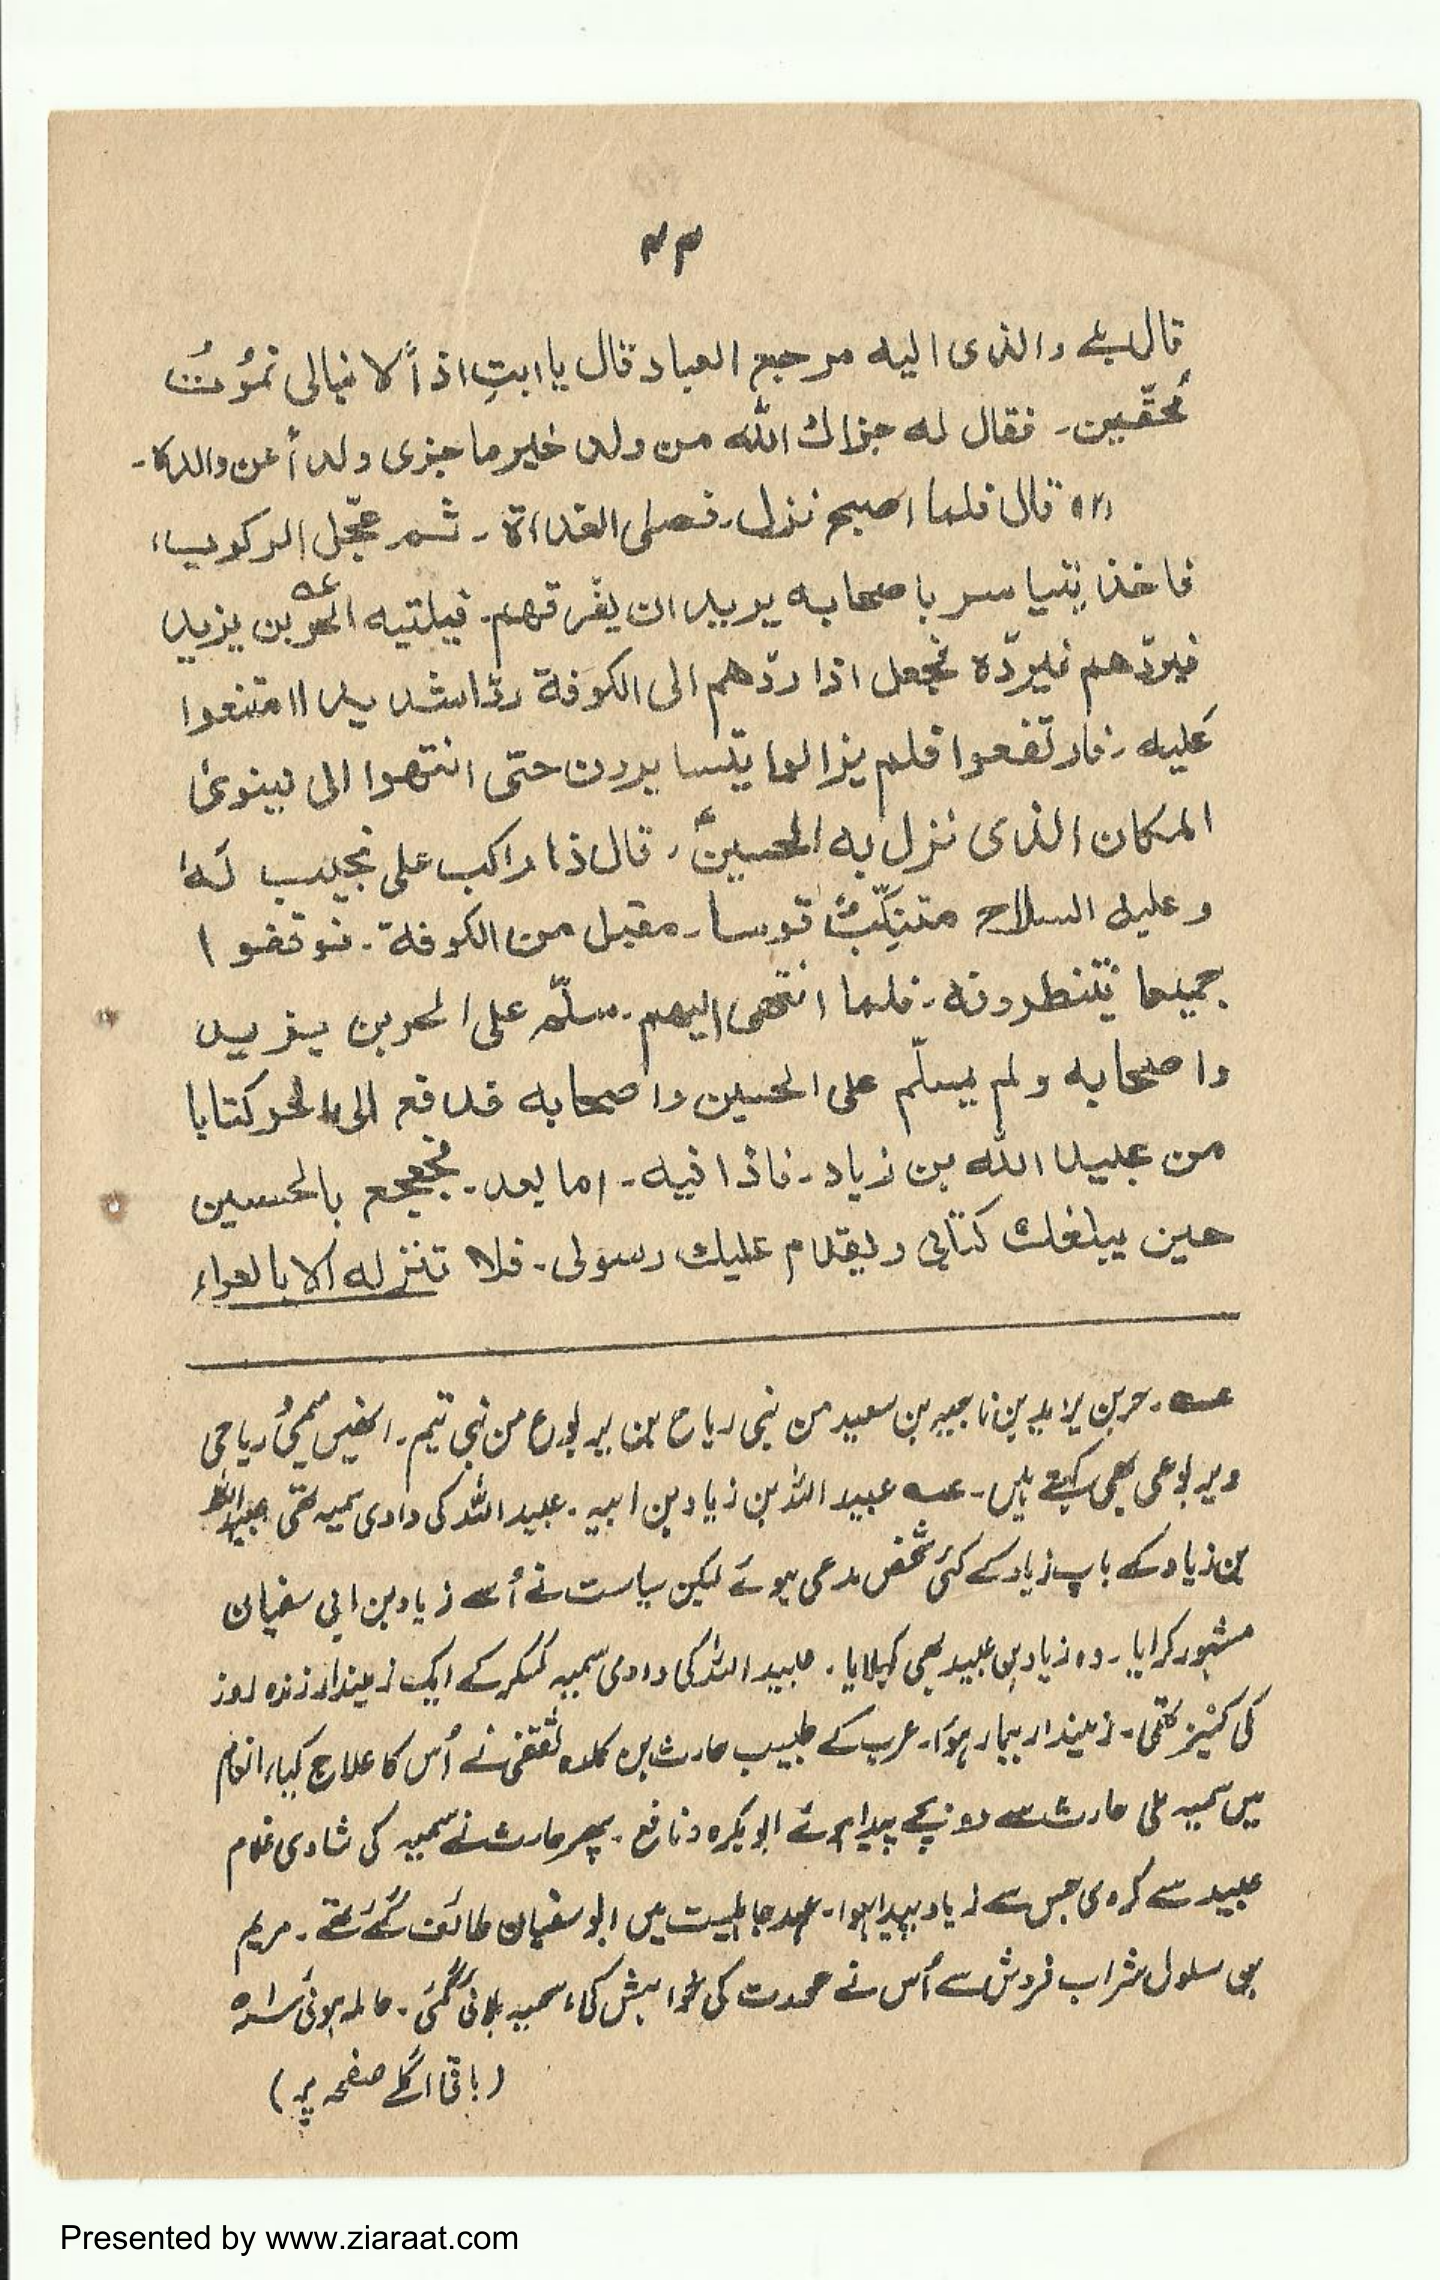 ۴۴
قال بلے والذی الیه مرجع العباد قال یا ابتِ اذاً لا نبالی نموُتُ
مُحقّین۔ فقال له جزاك الله من ولد خیر ما جزی ولداً عن والدہ۔
(۲) قال فلما اصبح نزل۔ فصلی الغداۃ۔ ثم عجّل الرکوب،
فاخذ یتیاسر باصحابه یرید ان یفرقهم۔ فیاتیه الحر بن یزید عہ
فیردّهم فیردّہ فجعل اذا ردّهم الی الکوفة ردّا شدیدا امتنعوا
عَلیه۔ فارتفعوا فلم یزالوا یتسایرون حتّی انتهوا الی نینویٰ
المکان الذی نزل به الحسینؑ۔ قال ذا راکب علی نجیب لهٗ
وعلیه السلاح متنکّبٌ قوسا۔ مقبل من الکوفة۔ فوقفوا
جمیعا ینتظرونه۔ فلما انتهی الیهم۔ سلّم علی الحر بن یزید
واصحابه ولم یسلّم علی الحسین واصحابه فدفع الی الحر کتابا
من عبید الله بن زیاد۔ فاذا فیه۔ اما بعد۔ فجعجع بالحسین
حین یبلغك کتابی ویقدم علیك رسولی۔ فلا تنزله الا بالعراء
عہ۔ حر بن یزید بن ناجیہ بن سعید من بنی ریاح بن یربوع من بنی تمیم۔ انھیں تمیمیُ ریاحی
ویربوعی بھی کہتے ہیں۔ عہ عبید اللہ بن زیاد بن ابیہ۔ عبید اللہ کی دادی سمیہ تھی عبید اللہ
بن زیاد کے باپ زیاد کے کئی شخص مدعی ہوئے لیکن سیاست نے اُسے زیاد بن ابی سفیان
مشہور کرایا۔ وہ زیاد بن عبید بھی کہلایا۔ عبید اللہ کی دادی سمیہ کسکر کے ایک زمیندار زندہ روز
کی کنیز تھی۔ زمیندار بیمار ہوَا۔ عرب کے طبیب حارث بن کلدہ ثقفی نے اُس کا علاج کیا، انعام
میں سمیہ ملی حارث سے دو بچے پیدا ہوئے ابو بکرہ و نافع۔ پھر حارث نے سمیہ کی شادی غلام
عبید سے کردی جس سے زیاد پیدا ہوا۔ عہد جاہلیت میں ابو سفیان طائف گئے تھے۔ مریم
سلول شراب فروش سے اُس نے عورت کی خواہش کی، سمیہ بلائی گئی۔ حاملہ ہوئی
(باقی اگلے صفحہ پر)
Presented by www.ziaraat.com